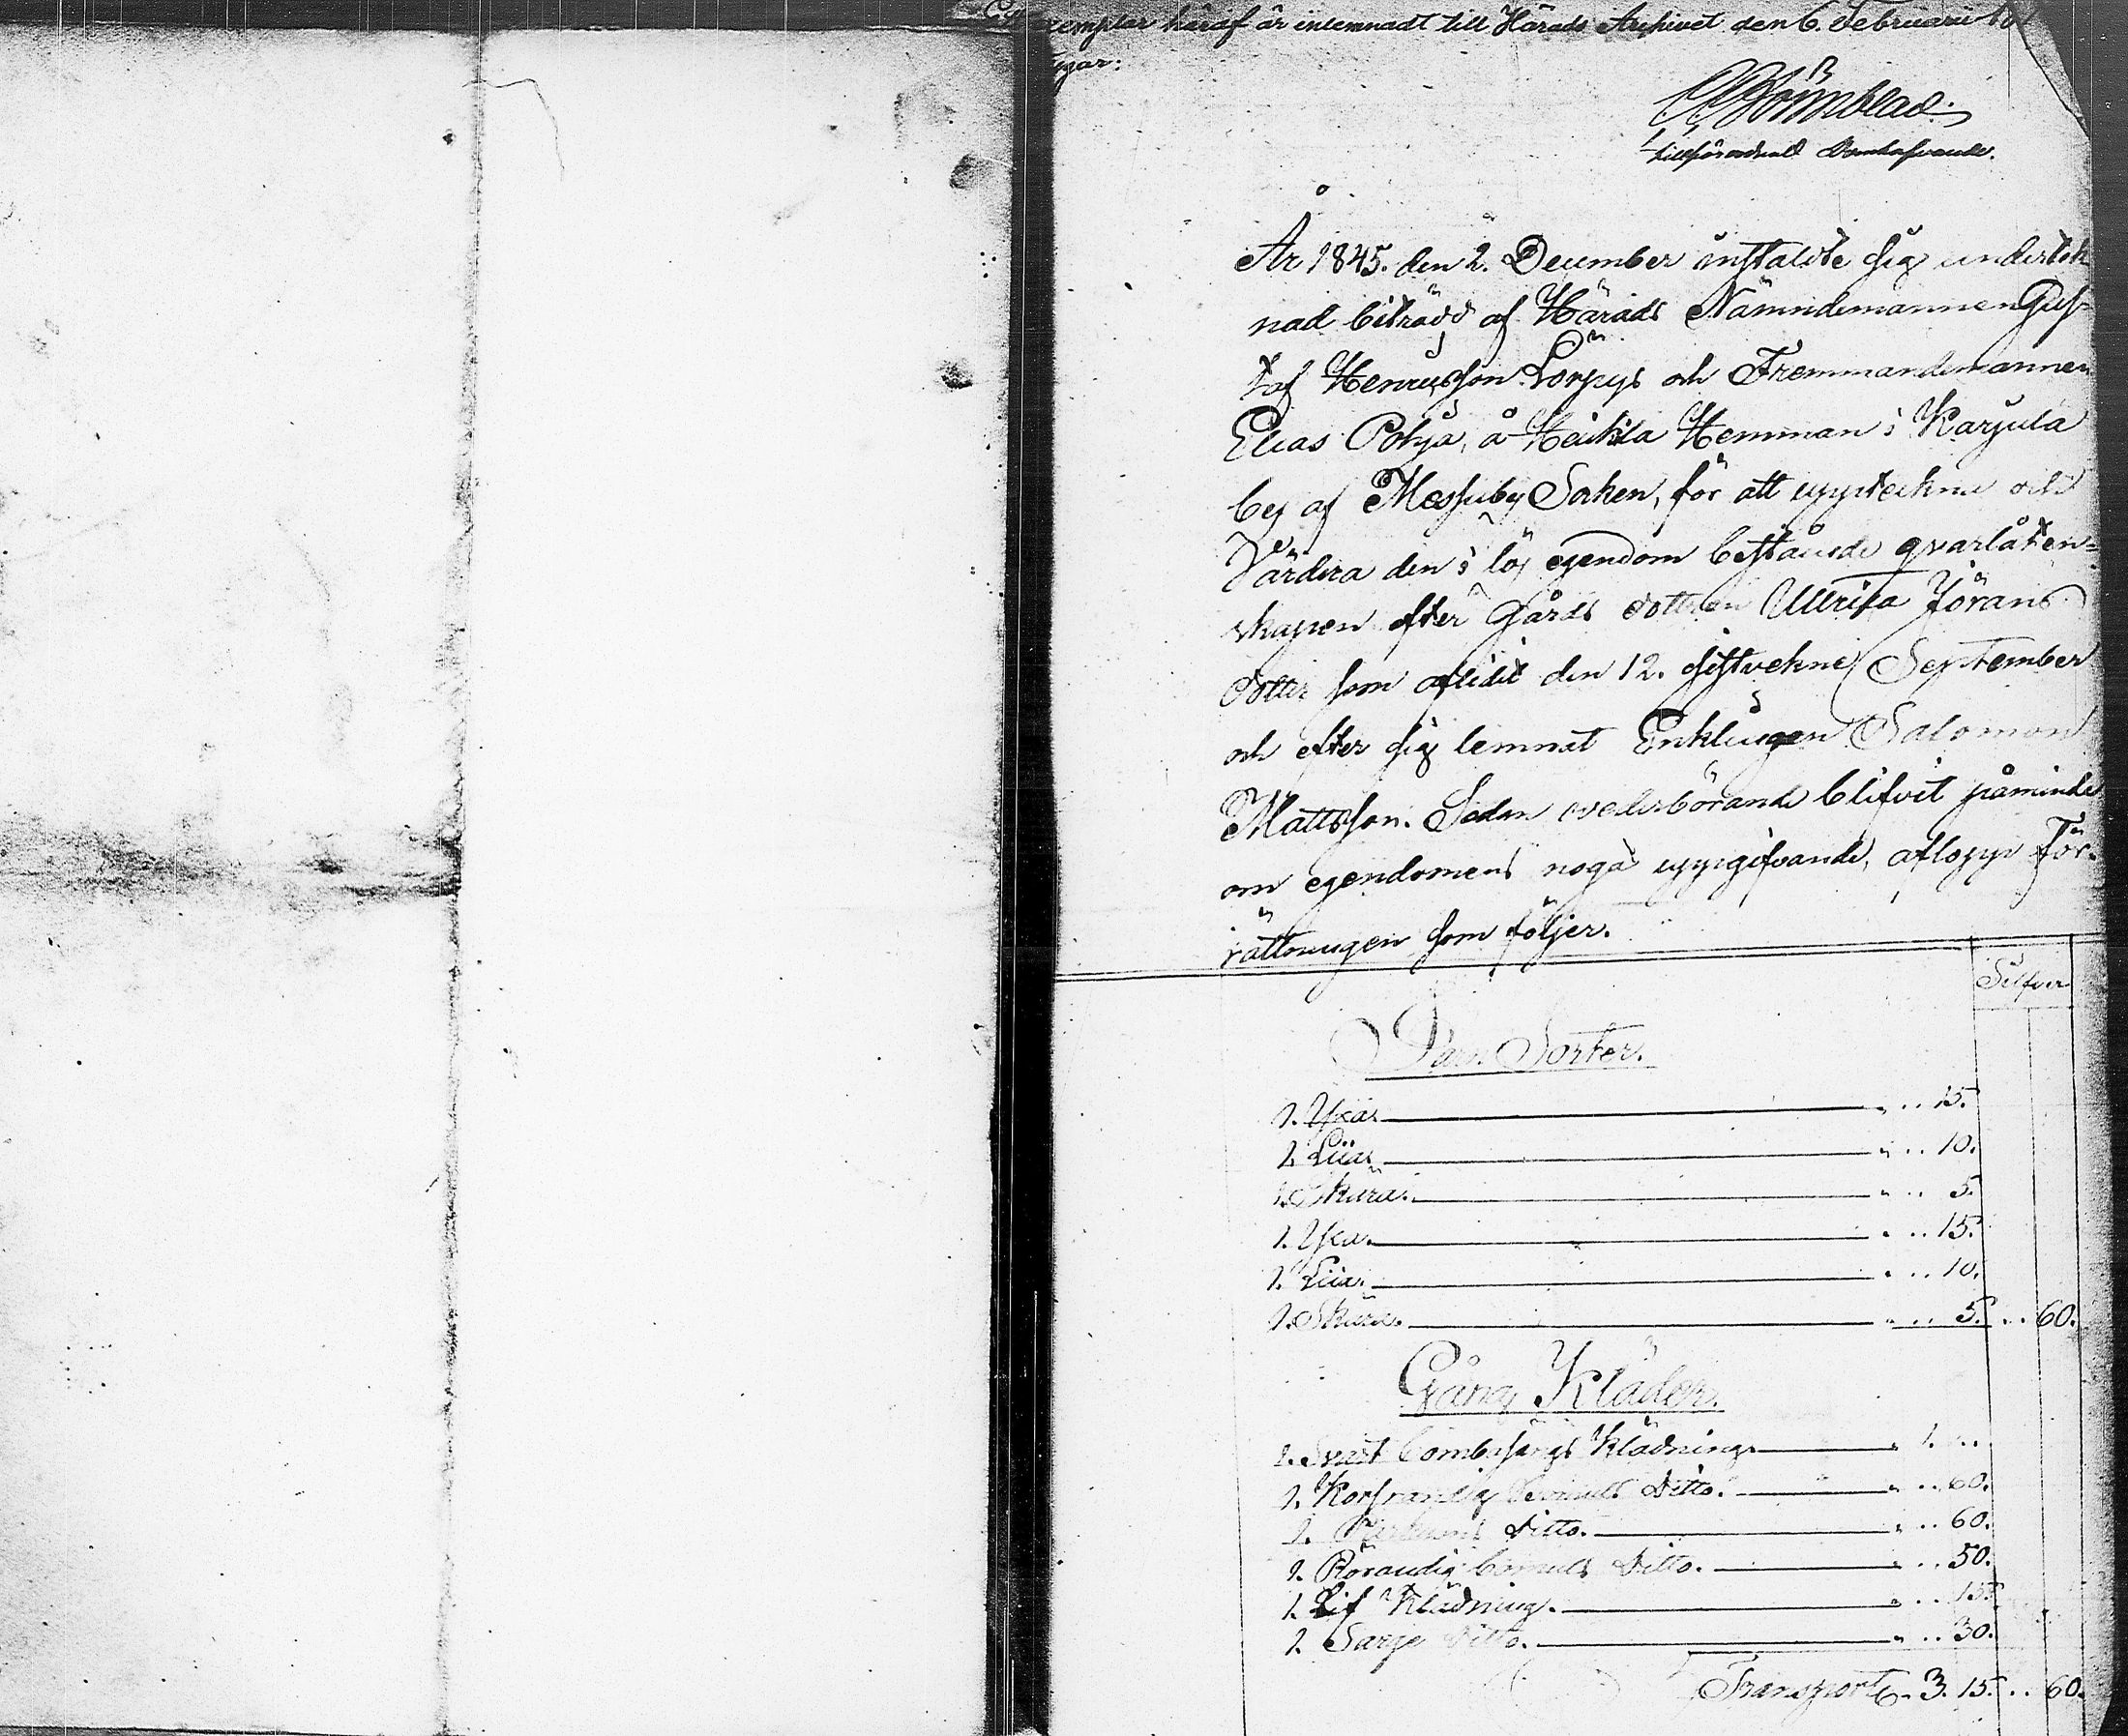 Exemplar häraf är inlemnadt till Härads Archivet den 6. Februarii
tygar:
tillförordnad Domhafvande.
År 1845. den 2. December instälde sig underteck
nad biträdd af Härads Nämndemannen Gus-
taf Henricsson Lorpys och Fremmandemannen
Elias Pohja, å Heikila Hemman i Karjula
by af Messuby Socken, för att uppteckna och
Värdera den i lös egendom bestående qvarlåten=
skapen efter Gårds dottren Ullrika Jörans
dotter som aflidit den 12. sistvekne September
och efter sig lemnat Enklingen Salomon
Mattsson. Sedan vederbörande blifvit påminde
om egendomens noga uppgifvande, aflopp för-
rättningen som följer.
Silfver
Jern Sorter.
1. Yxa " .. 15.
1. Liia " .. 10.
1. Skära. " .. 5.
1. Yxa. " .. 15.
1. Liia. " .. 10.
1. Skära. " .. 5. .. 60.
Gång Kläder.
1. Svart Combasangs Klädning. " 1. ..
1. Korsrandig Bomulls Ditto. " .. 60.
1. Ditto. " .. 60.
1. Rörandig Bomulls Ditto. " .. 50.
1. Lif Klädning. " .. 15.
1. Sarge Ditto. " .. 30.
Transport 3. 15. .. 60.